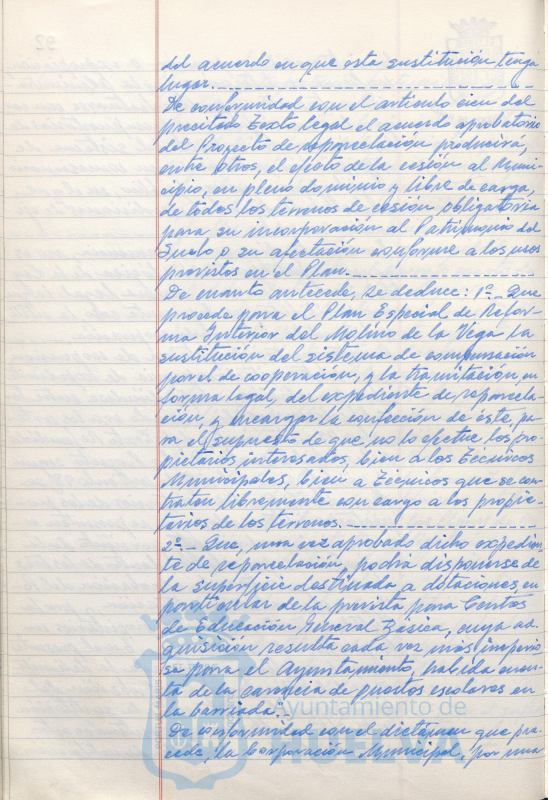 del acuerdo en que esta sustitución tenga
lugar.
De conformidad con el artículo cien del
precitado Texto legal el acuerdo aprobatorio
del Proyecto de reparcelación producirá,
entre otros, el efecto de la cesión al Muni-
cipio, en pleno dominio y libre de carga,
de todos los terrenos de cesión obligatoria
para su incorporación al Patrimonio del
Suelo o su afectación conforme a los usos
previstos en el Plan.
De cuanto antecede, se deduce: 1º.- Que
procede para el Plan Especial de Refor-
ma Interior del Molino de la Vega la
sustitución del sistema de compensación
por el de cooperación, y la tramitación, en
forma legal, del expediente de reparcela-
ción, y encargar la confección de éste, pa-
ra el supuesto de que no lo efectue los pro-
pietarios interesados, bien a los Técnicos
Municipales, bien a Técnicos que se con-
traten libremente con cargo a los propie-
tarios de los terrenos.
2º.- Que, una vez aprobado dicho expedien-
te de reparcelación, podría disponerse de
la superficie destinada a dotaciones, en
particular de la prevista para Centros
de Educación General Básica, cuya ad-
quisición resulta cada vez más imperio-
sa para el Ayuntamiento, habida cuen-
ta de la carencia de puestos escolares en
la barriada".-
De conformidad con el dictamen que pre-
cede, la Corporación Municipal, por una
Ayuntamiento de
HUELVA